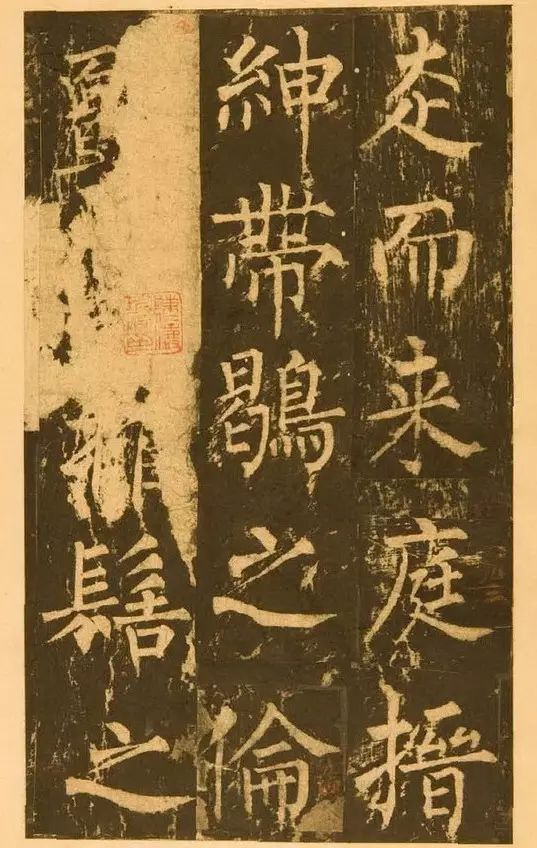 走而来庭搢
紳帶鶡之倫
髻之